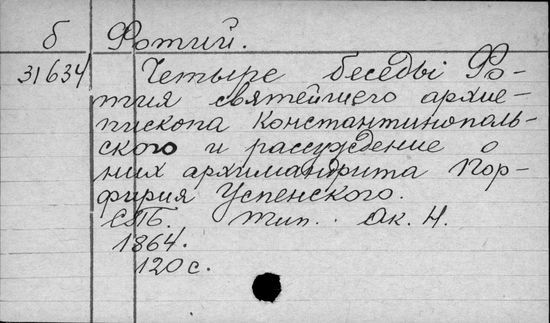 б Фотий.
31634 Четыре беседы Фо-
тия святейшего архие-
пископа Константинополь-
ского и рассуждение о
них архимандрита Пор-
фирия Успенского.
СПБ. Тип. Ак. Н.
1864.
120 с.